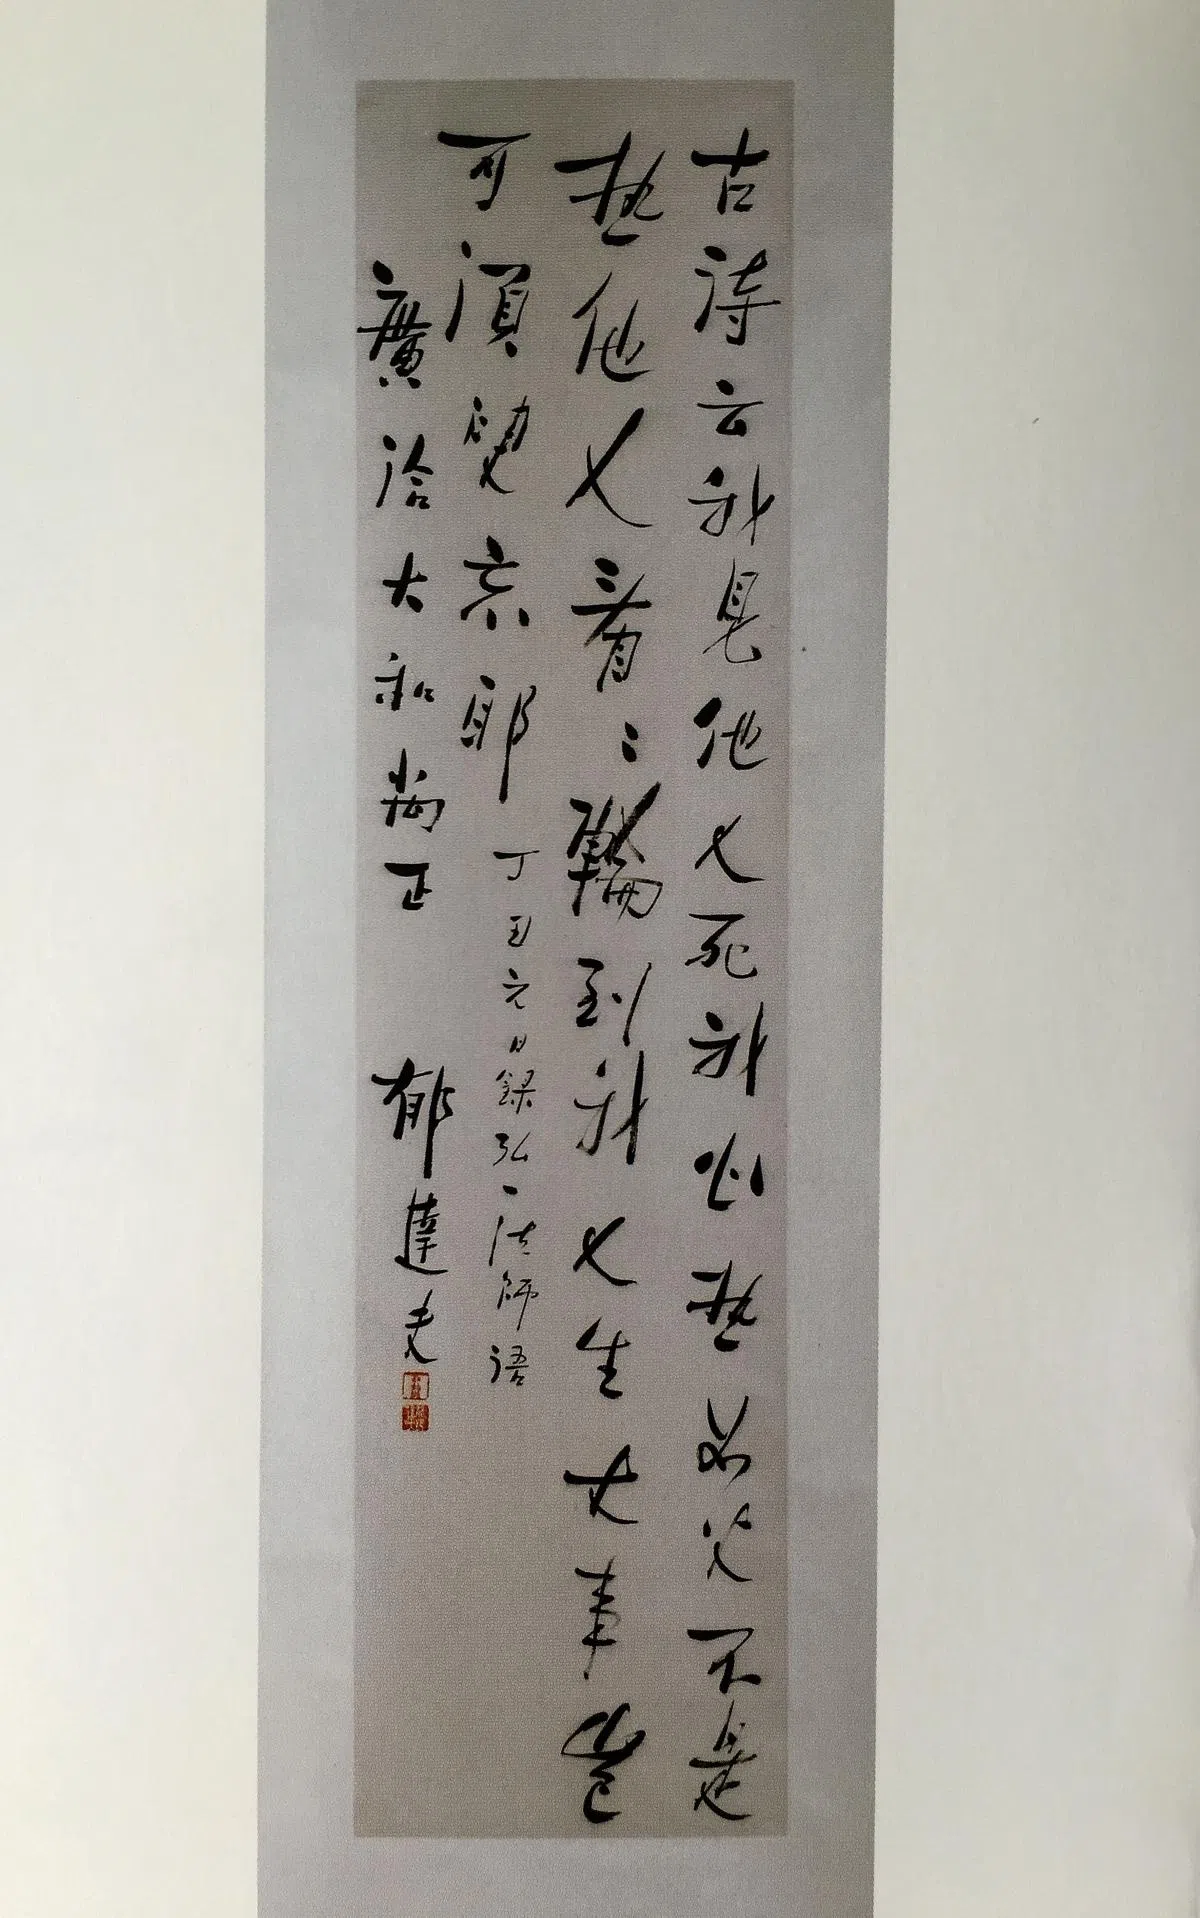 古诗云我見他人死我心热如火不是
热他人看〻輪到我人生大事豈
可須臾忘耶
丁丑元日録弘一法師語
廣洽大和尚正 郁達夫